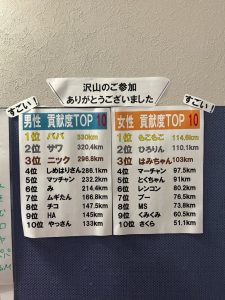 沢山のご参加
ありがとうございました
すごい!
すごい!
男性 貢献度TOP 10
1位 パパ 330km
2位 サワ 320.4km
3位 ニック 296.8km
4位 しめはりさん 286.1km
5位 マッチャン 232.2km
6位 み 214.4km
7位 ムギたん 166.8km
8位 チコ 147.5km
9位 HA 145km
10位 やっさん 133km
女性 貢献度TOP 10
1位 もこもこ 114.6km
2位 ひろりん 110.1km
3位 はみちゃん 103km
4位 マーチャン 97.5km
5位 とくちゃん 91km
6位 レンコン 80.2km
7位 プー 76.5km
8位 MS 73.8km
9位 くみくみ 60.5km
10位 さくら 51.1km